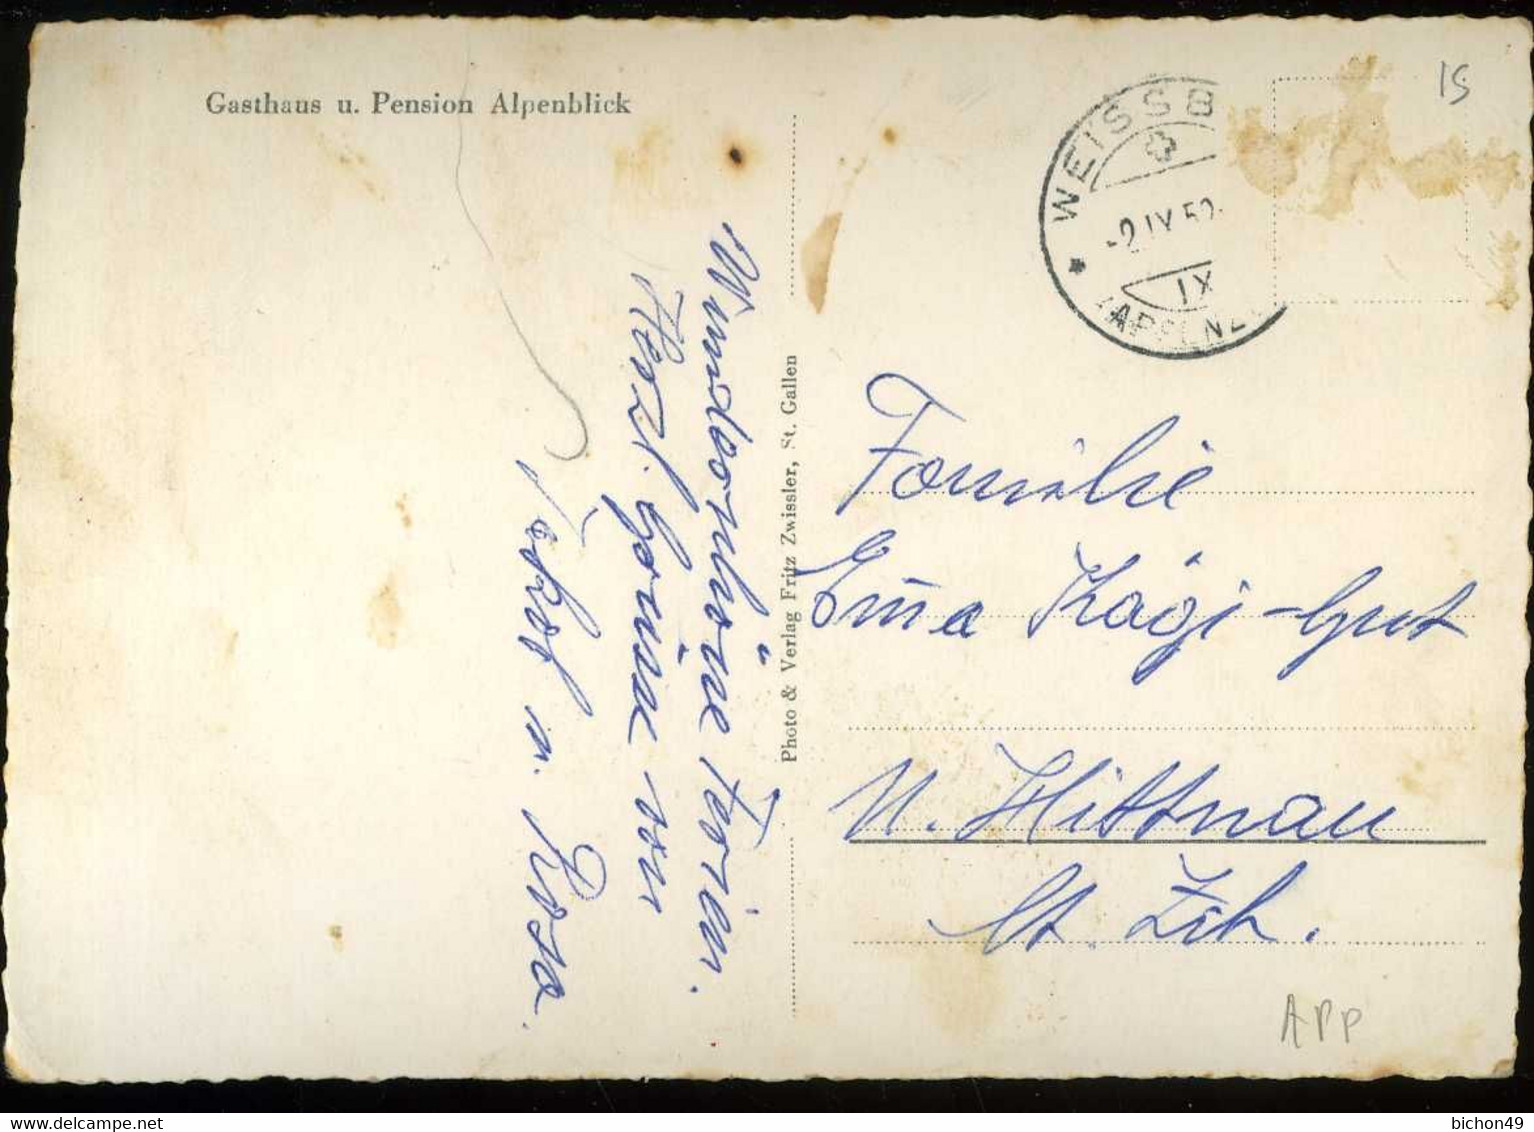 Gasthaus u. Pension Alpenblick
Wunderschöne Ferien.
Herzl. Grüsse von
u. Rosa.
Photo & Verlag Fritz Zwissler, St. Gallen
WEISSB
-2.IX.52.
IX
(APPENZ
15
Familie
Kägi-Gut
U. Hittnau
Kt. Zch.
APP
bichon49